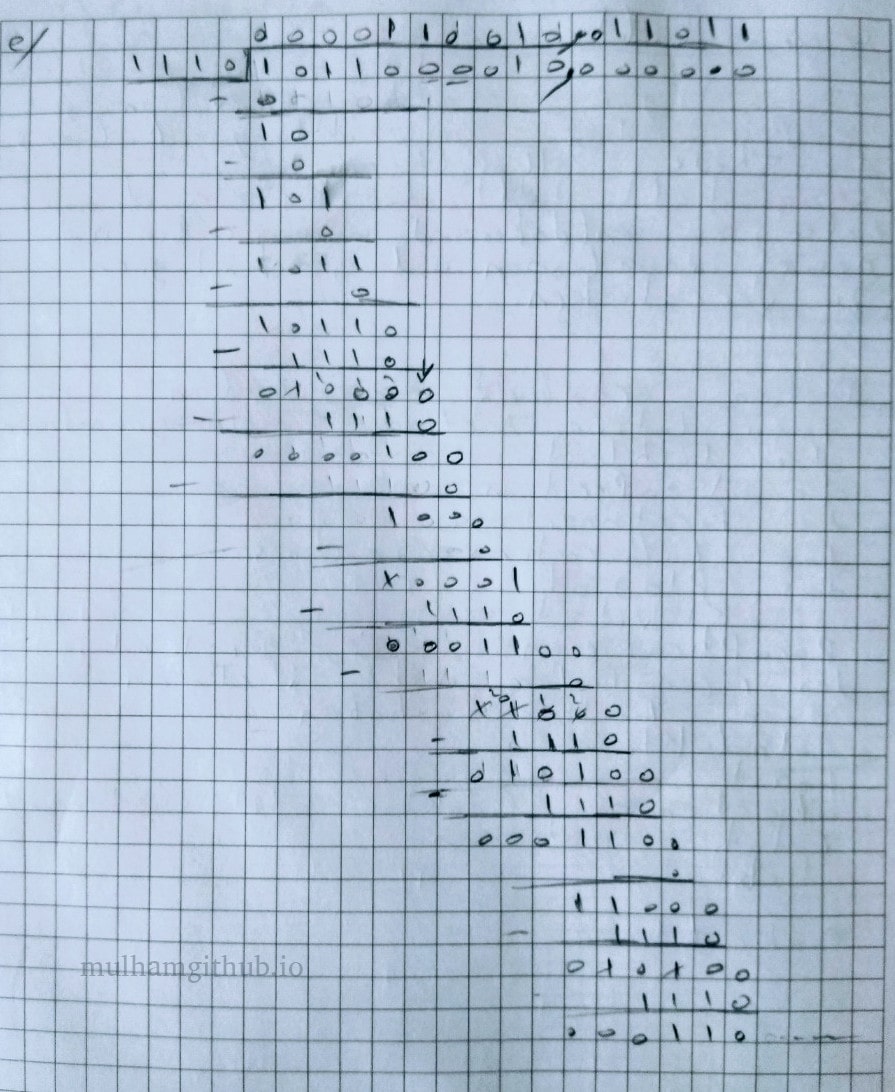 e/ 0 0 0 0 1 1 0 0 1 0 , 0 1 1 0 1 1
1 1 1 0 1 0 1 1 0 0 0 0 1 0 , 0 0 0 0 0 0
- 0
1 0
- 0
1 0 1
- 0
1 0 1 1
- 0
1 0 1 1 0
- 1 1 1 0
0 1 0 0 0 0
- 1 1 1 0
0 0 0 0 1 0 0
- 0
1 0 0 0
- 0
1 0 0 0 1
- 1 1 1 0
0 0 0 1 1 0 0
- 0
1 1 0 0 0
- 1 1 1 0
0 1 0 1 0 0
- 1 1 1 0
0 0 0 1 1 0 0
0
1 1 0 0 0
- 1 1 1 0
mulhamgithub.io
0 1 0 1 0 0
- 1 1 1 0
0 0 0 1 1 0 -----